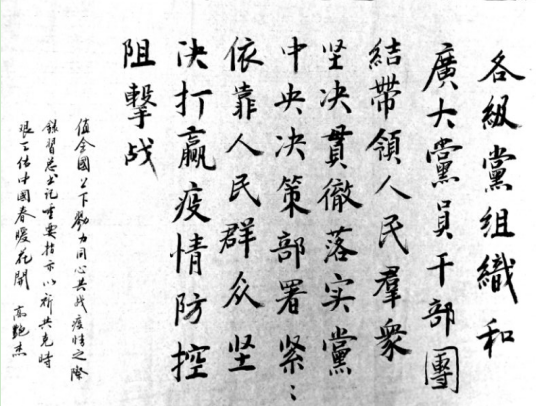 各級黨組織和
廣大黨員干部團
結帶領人民羣衆
坚决貫徹落实黨
中央决策部署紧〻
依靠人民群众坚
决打赢疫情防控
阻擊战
值全國上下勠力同心共战疫情之際
録習总书记重要指示以祈共克時
艰佑中國春暖花開 高艶杰